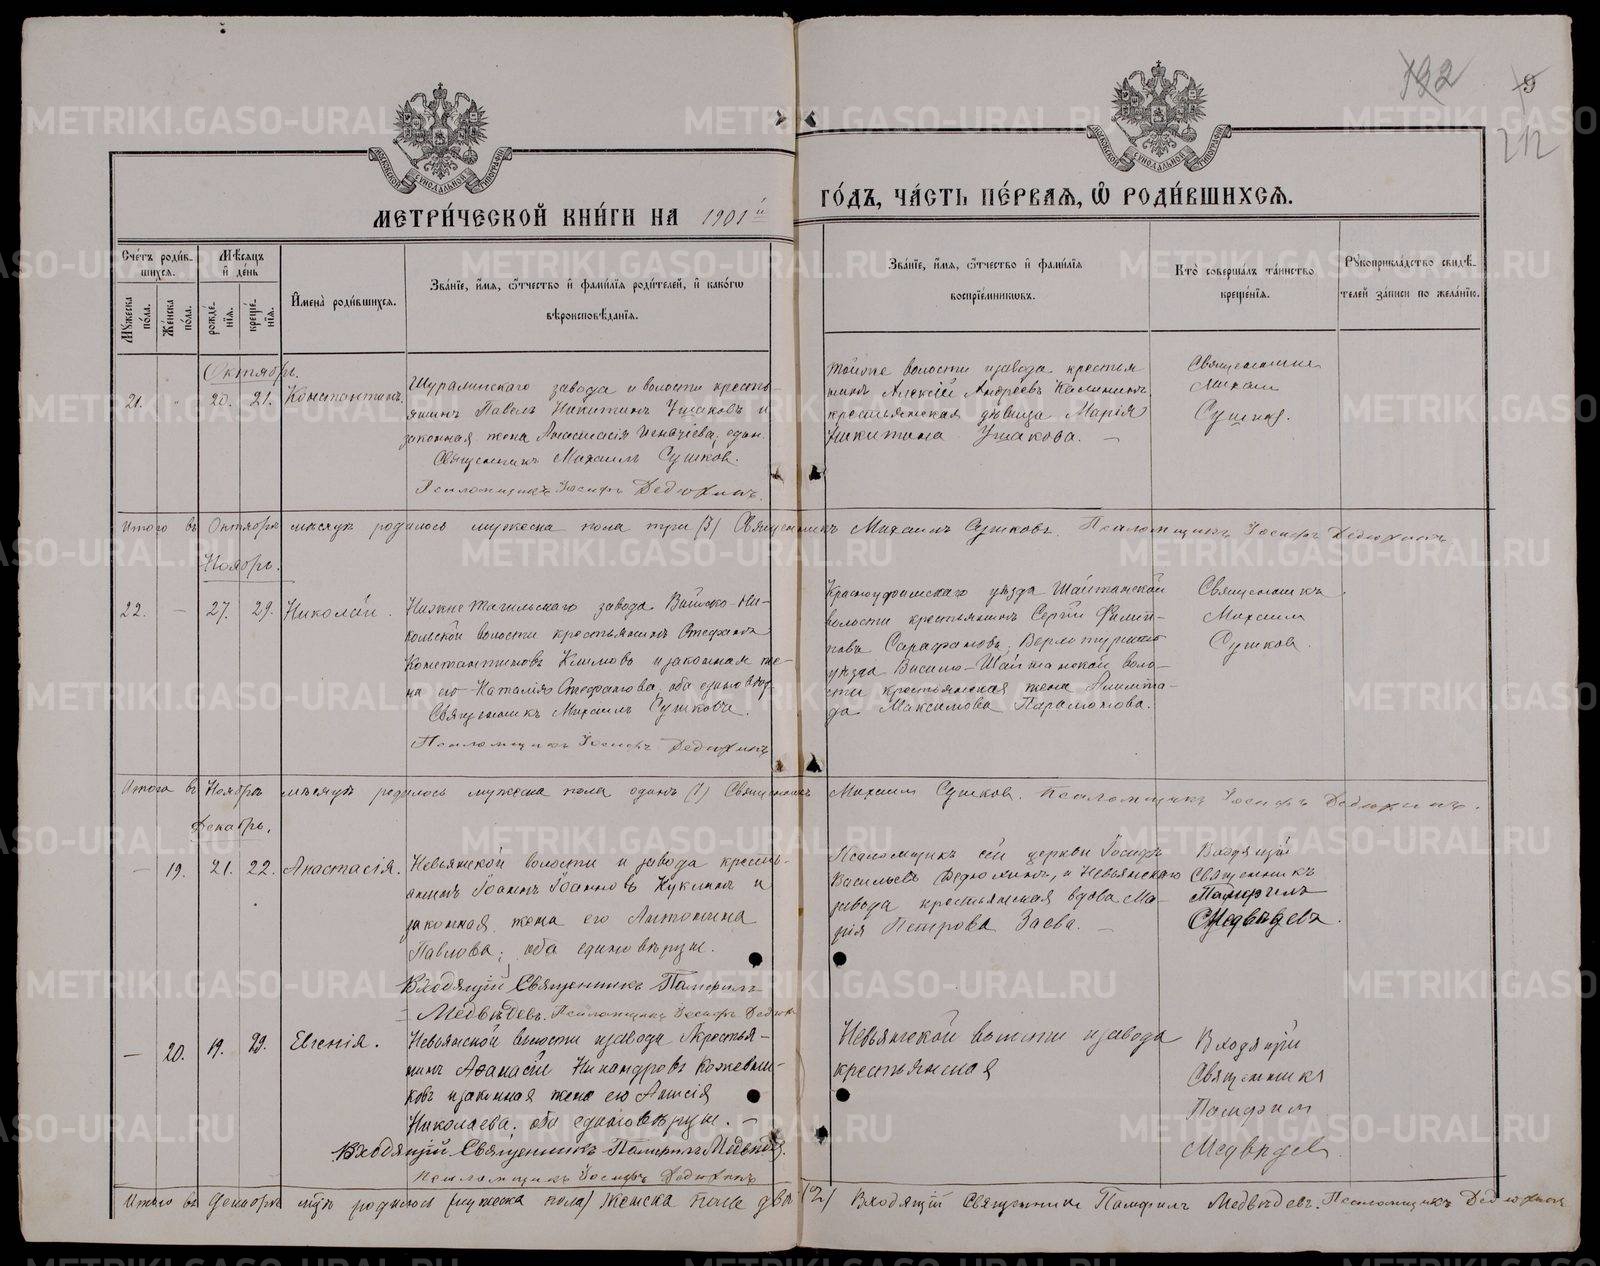 192
9
212
МОСКОВСКОЙ СѴНОДАЛЬНОЙ ТИПОГРАФІИ
МОСКОВСКОЙ СѴНОДАЛЬНОЙ ТИПОГРАФІИ
МЕТРИ́ЧЕСКОЙ КНИ́ГИ НА 1901 й
ГО́ДЪ, ЧА́СТЬ ПЕ́РВАѦ, Ѡ҆ РОДИ́ВШИХСѦ.
Сче́тъ роди́в-
шихся.
Мужеска по́ла.
Же́нска по́ла.
Мѣ́сяцъ и день
рожде́-нія.
креще́-нія.
Имена̀ роди́вшихся.
Зва́ніе, и́мя, ѻ҆́тчество и фами́лія роди́телей, и како́гѡ
вѣроисповѣ́данія.
Зва́ніе, и́мя, ѻ҆́тчество и фами́лія
воспріе́мниковъ.
Кто̀ соверша́лъ та́инство
креще́нія.
Рукоприкла́дство свидѣ́-
телей за́писи по жела́нію.
Октябрь.
21. 20. 21. Константинъ.
Шуралинскаго завода и волости кресть-
янинъ Павелъ Никитинъ Ушаковъ и
законная жена Анастасія Игнатіева, един.
Священникъ Михаилъ Сушков.
Псаломщикъ Іосифъ Дедюхинъ.
тойже волости и завода крестья
нинъ Алексій Андреевъ Калининъ
крестьянская дѣвица Марія
Никитина Ушакова. —
Священник
Михаил
Сушков.
Итого въ Октябрѣ мѣсяцѣ родилось мужеска пола три (3) Священникъ Михаилъ Сушковъ. Псаломщикъ Іосифъ Дедюхинъ
Ноябрь.
22. — 27. 29. Николай.
Нижне Тагильскаго завода Выйско-Ни-
кольской волости крестьянинъ Стефанъ
Константиновъ Климовъ и законная же-
на его Наталія Стефанова, оба единовѣр.
Священникъ Михаилъ Сушковъ.
Псаломщикъ Іосифъ Дедюхинъ
Красноуфимскаго уѣзда Шайтанской
волости крестьянинъ Сергій Филип-
повъ Сарафановъ, Верхотурскаго
уѣзда Васильо-Шайтанской воло-
сти крестьянская жена
да Максимова Парамонова.
Священникъ
Михаилъ
Сушков.
Итого въ Ноябрѣ мѣсяцѣ родилось мужеска пола одинъ (1) Священникъ Михаилъ Сушков. Псаломщикъ Іосифъ Дедюхинъ.
Декабрь.
— 19. 21. 22. Анастасія.
Невьянской волости и завода кресть-
янинъ Іоаннъ Іоанновъ Кукинъ и
законная жена его Антонина
Павлова; оба единовѣрцы.
Входящій Священникъ Памфилъ
Медвѣдевъ. Псаломщикъ Іосифъ Дедюх
Псаломщикъ сей церкви Іосифъ
Васильевъ Дедюхинъ, и Невьянскаго
завода крестьянская вдова Ма-
рія Петрова Заева. —
Входящій
Священникъ
Памфилъ
Медвѣдевъ.
— 20. 19. 29. Евгенія.
Невьянской волости и завода крестья-
нинъ Аѳанасій Никандровъ Кожевни-
ковъ и законная жена его Анисія
Николаева. оба единовѣрцы. —
Входящій Священникъ Памфилъ Медвѣдев.
Псаломщикъ Іосифъ Дедюхинъ
Невьянской волости и завода
крестьянская
Входящій
Священникъ
Памфил
Медвѣдев
Итого въ Декабрѣ мцѣ родилось (мужеска пола) женска пола два (2) Входящій Священник Памфилъ Медвѣдевъ. Псаломщикъ Дедюхинъ
METRIKI.GASO-URAL.RU